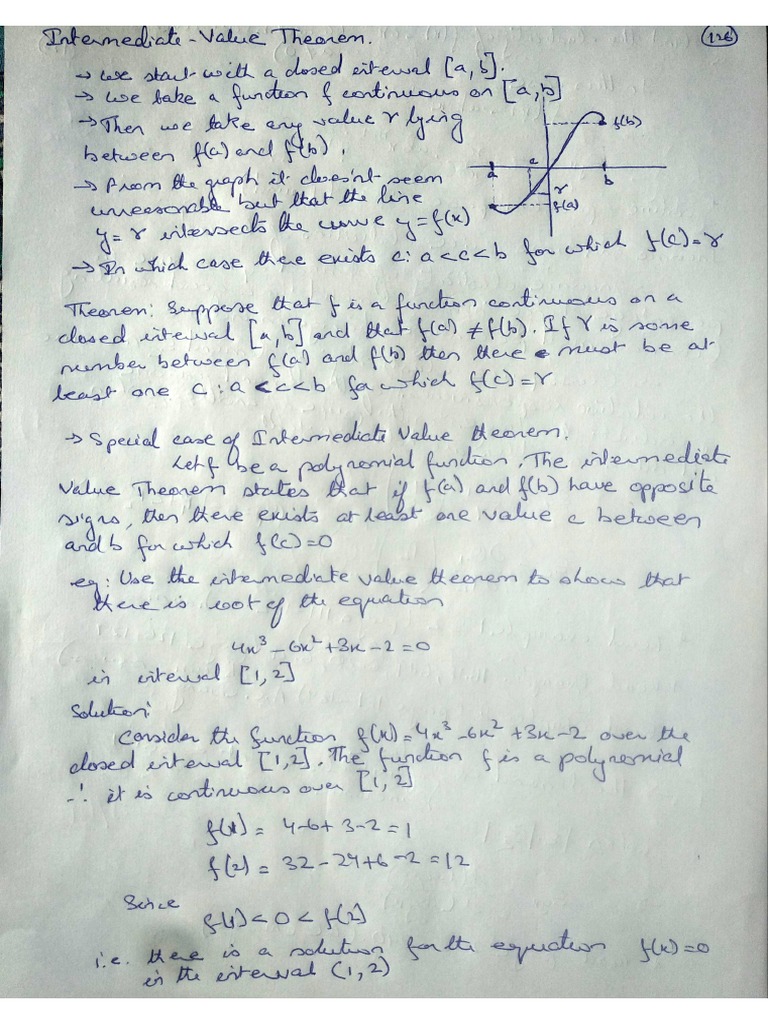 Intermediate-Value Theorem. 126
→ We start with a closed interval [a, b].
→ We take a function f continuous on [a, b]
→ Then we take any value r lying
between f(a) and f(b).
→ From the graph it doesn't seem
unreasonable but that the line
y = r intersects the curve y = f(x)
→ In which case there exists c : a < c < b for which f(c) = r
f(b)
a
c
b
r
f(a)
Theorem: Suppose that f is a function continuous on a
closed interval [a, b] and that f(a) ≠ f(b). If r is some
number between f(a) and f(b) then there must be at
least one c : a < c < b for which f(c) = r
→ Special case of Intermediate Value theorem.
Let f be a polynomial function, The intermediate
Value Theorem states that if f(a) and f(b) have opposite
signs, then there exists at least one value c between
a and b for which f(c) = 0
eg: Use the intermediate value theorem to show that
there is root of the equation
4x³ - 6x² + 3x - 2 = 0
in interval [1, 2]
Solution:
Consider the function f(x) = 4x³ - 6x² + 3x - 2 over the
closed interval [1, 2]. The function f is a polynomial
∴ it is continuous over [1, 2]
f(1) = 4 - 6 + 3 - 2 = 1
f(2) = 32 - 24 + 6 - 2 = 12
Since
f(1) < 0 < f(2)
i.e. there is a solution for the equation f(x) = 0
in the interval (1, 2)